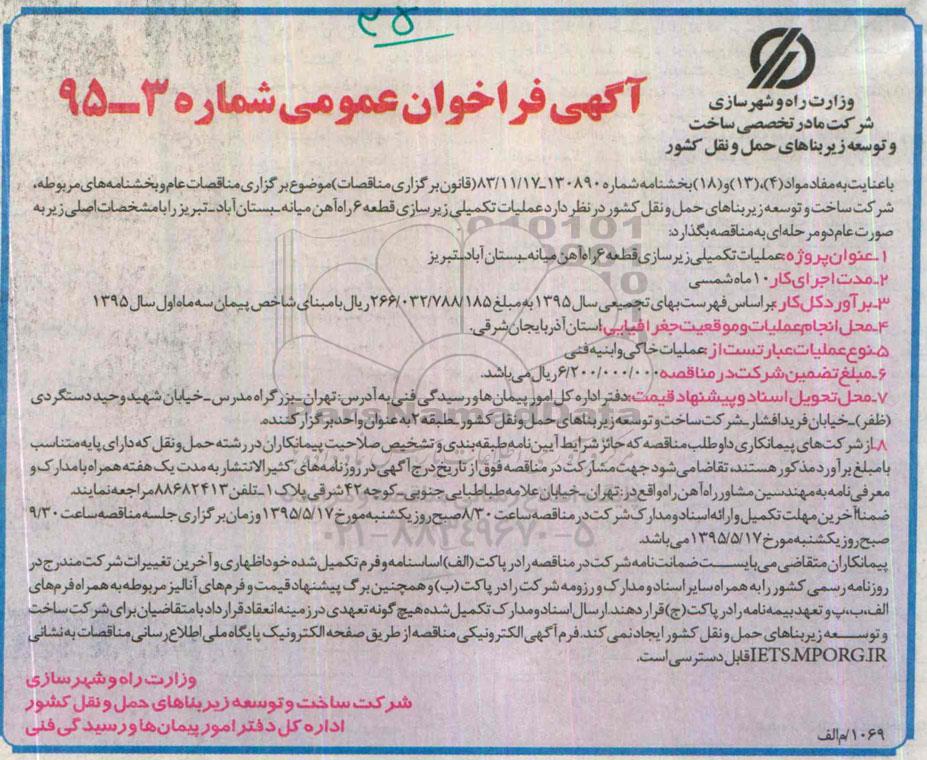 ۲۵
وزارت راه و شهرسازی
شرکت مادر تخصصی ساخت
و توسعه زیربناهای حمل و نقل کشور
آگهی فراخوان عمومی شماره ۳ــ۹۵
باعنایت به مفاد مواد (۴)، (۱۳) و (۱۸) بخشنامه شماره ۱۳۰۸۹۰ـ۸۳/۱۱/۱۷ (قانون برگزاری مناقصات) موضوع برگزاری مناقصات عام و بخشنامه‌های مربوطه،
شرکت ساخت و توسعه زیربناهای حمل و نقل کشور در نظر دارد عملیات تکمیلی زیرسازی قطعه ۶ راه‌آهن میانه ـ بستان آباد ـ تبریز را با مشخصات اصلی زیر به
صورت عام دو مرحله‌ای به مناقصه بگذارد:
۱ـ عنوان پروژه: عملیات تکمیلی زیرسازی قطعه ۶ راه‌آهن میانه ـ بستان آباد ـ تبریز
۲ـ مدت اجرای کار: ۱۰ ماه شمسی
۳ـ برآورد کل کار: براساس فهرست بهای تجمیعی سال ۱۳۹۵ به مبلغ ۲۶۶/۰۳۲/۷۸۸/۱۸۵ ریال با مبنای شاخص پیمان سه ماه اول سال ۱۳۹۵
۴ـ محل انجام عملیات و موقعیت جغرافیایی: استان آذربایجان شرقی.
۵ـ نوع عملیات عبارتست از: عملیات خاکی و ابنیه فنی
۶ـ مبلغ تضمین شرکت در مناقصه ۶/۲۰۰/۰۰۰/۰۰۰ ریال می‌باشد.
۷ـ محل تحویل اسناد و پیشنهاد قیمت: دفتر اداره کل امور پیمان‌ها و رسیدگی فنی به آدرس: تهران ـ بزرگراه مدرس ـ خیابان شهید وحید دستگردی
(ظفر) ـ خیابان فرید افشار ـ شرکت ساخت و توسعه زیربناهای حمل و نقل کشور ـ طبقه ۲ به عنوان واحد برگزار کننده.
۸ـ از شرکت‌های پیمانکاری داوطلب مناقصه که حائز شرایط آیین نامه طبقه‌بندی و تشخیص صلاحیت پیمانکاران در رشته حمل و نقل که دارای پایه متناسب
با مبلغ برآورد مذکور هستند، تقاضا می‌شود جهت مشارکت در مناقصه فوق از تاریخ درج آگهی در روزنامه‌های کثیرالانتشار به مدت یک هفته همراه با مدارک و
معرفی نامه به مهندسین مشاور راه‌آهن راه واقع در: تهران ـ خیابان علامه طباطبایی جنوبی ـ کوچه ۴۲ شرقی پلاک ۱ ـ تلفن ۸۸۶۸۲۴۱۳ مراجعه نمایند.
ضمناً آخرین مهلت تکمیل و ارائه اسناد و مدارک شرکت در مناقصه ساعت ۸/۳۰ صبح روز یکشنبه مورخ ۱۳۹۵/۵/۱۷ و زمان برگزاری جلسه مناقصه ساعت ۹/۳۰
صبح روز یکشنبه مورخ ۱۳۹۵/۵/۱۷ می‌باشد.
پیمانکاران متقاضی می‌بایست ضمانت‌نامه شرکت در مناقصه را در پاکت (الف) اساسنامه و فرم تکمیل شده خوداظهاری و آخرین تغییرات شرکت مندرج در
روزنامه رسمی کشور را به همراه سایر اسناد و مدارک و رزومه شرکت را در پاکت (ب) و همچنین برگ پیشنهاد قیمت و فرم‌های آنالیز مربوطه به همراه فرم‌های
الف، ب، پ و تعهد بیمه نامه را در پاکت (ج) قرار دهند. ارسال اسناد و مدارک تکمیل شده هیچ گونه تعهدی در زمینه انعقاد قرارداد با متقاضیان برای شرکت ساخت
و توسعه زیربناهای حمل و نقل کشور ایجاد نمی‌کند. فرم آگهی الکترونیکی مناقصه از طریق صفحه الکترونیک پایگاه ملی اطلاع رسانی مناقصات به نشانی
IETS.MPORG.IR قابل دسترسی است.
وزارت راه و شهرسازی
شرکت ساخت و توسعه زیربناهای حمل و نقل کشور
اداره کل دفتر امور پیمان‌ها و رسیدگی فنی
۱۰۶۹/م الف
ParsNamadData
۰۲۱-۸۸۳۴۹۶۷۰-۵